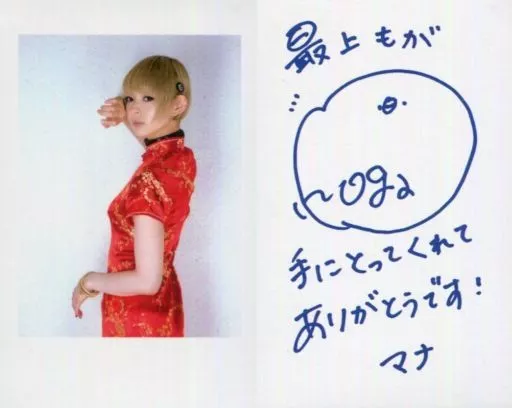 最上もが
moga
手にとってくれて
ありがとうです!
マナ